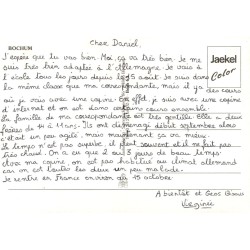 BOCHUM
Cher Daniel,
J'espère que tu vas bien. Moi, ça va très bien. Je me
suis très bien adaptée à l'Allemagne. Je vais à
l'école tous les jours depuis le 15 août. Je suis dans
la même classe que ma correspondante, mais il y a des cours
où je vais avec une copine. En effet, je suis avec une copine
d'internat et on est dans certains cours ensemble.
La famille de ma correspondante est très gentille. Elle a deux
frères de 14 et 11 ans. Ils ont déménagé début septembre alors
c'était un peu agité, mais maintenant ça va mieux.
Le temps n'est pas superbe, il pleut souvent et il ne fait pas
très chaud. On a eu que 2 ou 3 jours de beau temps.
Avec ma copine, on est pas habitué au climat allemand
car on est toutes les deux un peu malade.
Je rentre en France environ au 15 octobre.
A bientôt et Gros Bisous
Virginie
Jaekel
Color